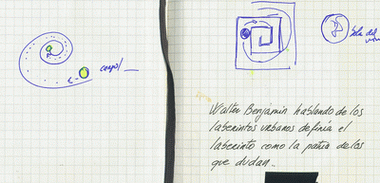 Walter Benjamin hablando de los
laberintos urbanos definía el
laberinto como la patria de los
que dudan.